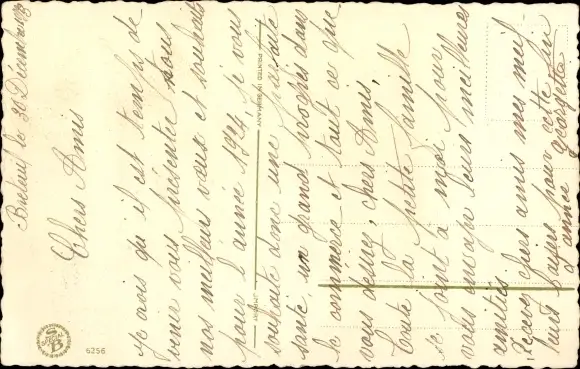 le 30 Decembre 1923
Chers Amis
je crois qu'il est temps de
venir vous présenter tous
nos meilleurs vœux et souhaits
pour l'année 1924, je vous
souhaite donc une parfaite
santé, un grand progrès dans
le commerce et tout ce que
vous désirez, chers Amis,
toute la petite famille
se joint à moi pour
vous envoyer leurs meilleures
amitiés
Recevez chers amis mes meil
leurs baisers pour cette fin
d'année Georgette
PRINTED IN GERMANY
6256